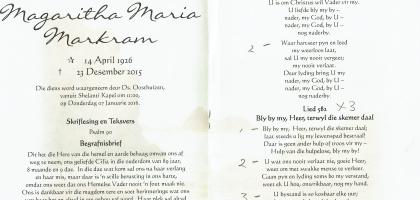 Magaritha Maria
Markram
☆ 14 April 1926
† 23 Desember 2015
Die diens word waargeneem deur Ds. Oosthuizen,
vanuit Shelanti Kapel om 11:00,
op Donderdag 07 Januarie 2016.
Skriflesing en Teksvers
Psalm 90
Begrafnisbrief
Dit het die Here van die hemel en aarde behaag om ons af
weg te neem, ons geliefde Cilia, in die ouderdom van 89 jaar,
8 maande en 9 dae. In die dae wat kom sal ons na haar verlang
en haar mis, maar daar is 'n stille berusting in ons harte,
omdat ons weet dat ons Hemelse Vader nooit 'n fout maak nie.
Ons is dankbaar vir die
U is om Christus wil Vader vir my.
U liefde bly my by –
nader, my God, by U –
nader, my God, by U –
nog naderby.
2 - Waar hartseer pyn en leed
my weerloos laat,
sal U my nooit vergeet;
my nooit verlaat.
Deur lyding bring U my
nader, my God, by U –
nader, my God, by U –
nog naderby.
Lied 582 x3
Bly by my, Heer, terwyl die skemer daal
1 - Bly by my, Heer, terwyl die skemer daal;
laat steeds u lig my lewenspad bestraal!
Daar is geen ander hulp of troos vir my –
Hulp van die hulpelose, bly by my!
2 - U wat ons nooit verlaat nie, goeie Heer,
weet ons met swakke mense te verkeer.
Gaan pyn en lyding soms by my verstand,
weet ek U has, onwrikbaar, nog my hand.
3 - U bystand is so kosbaar elke uur;